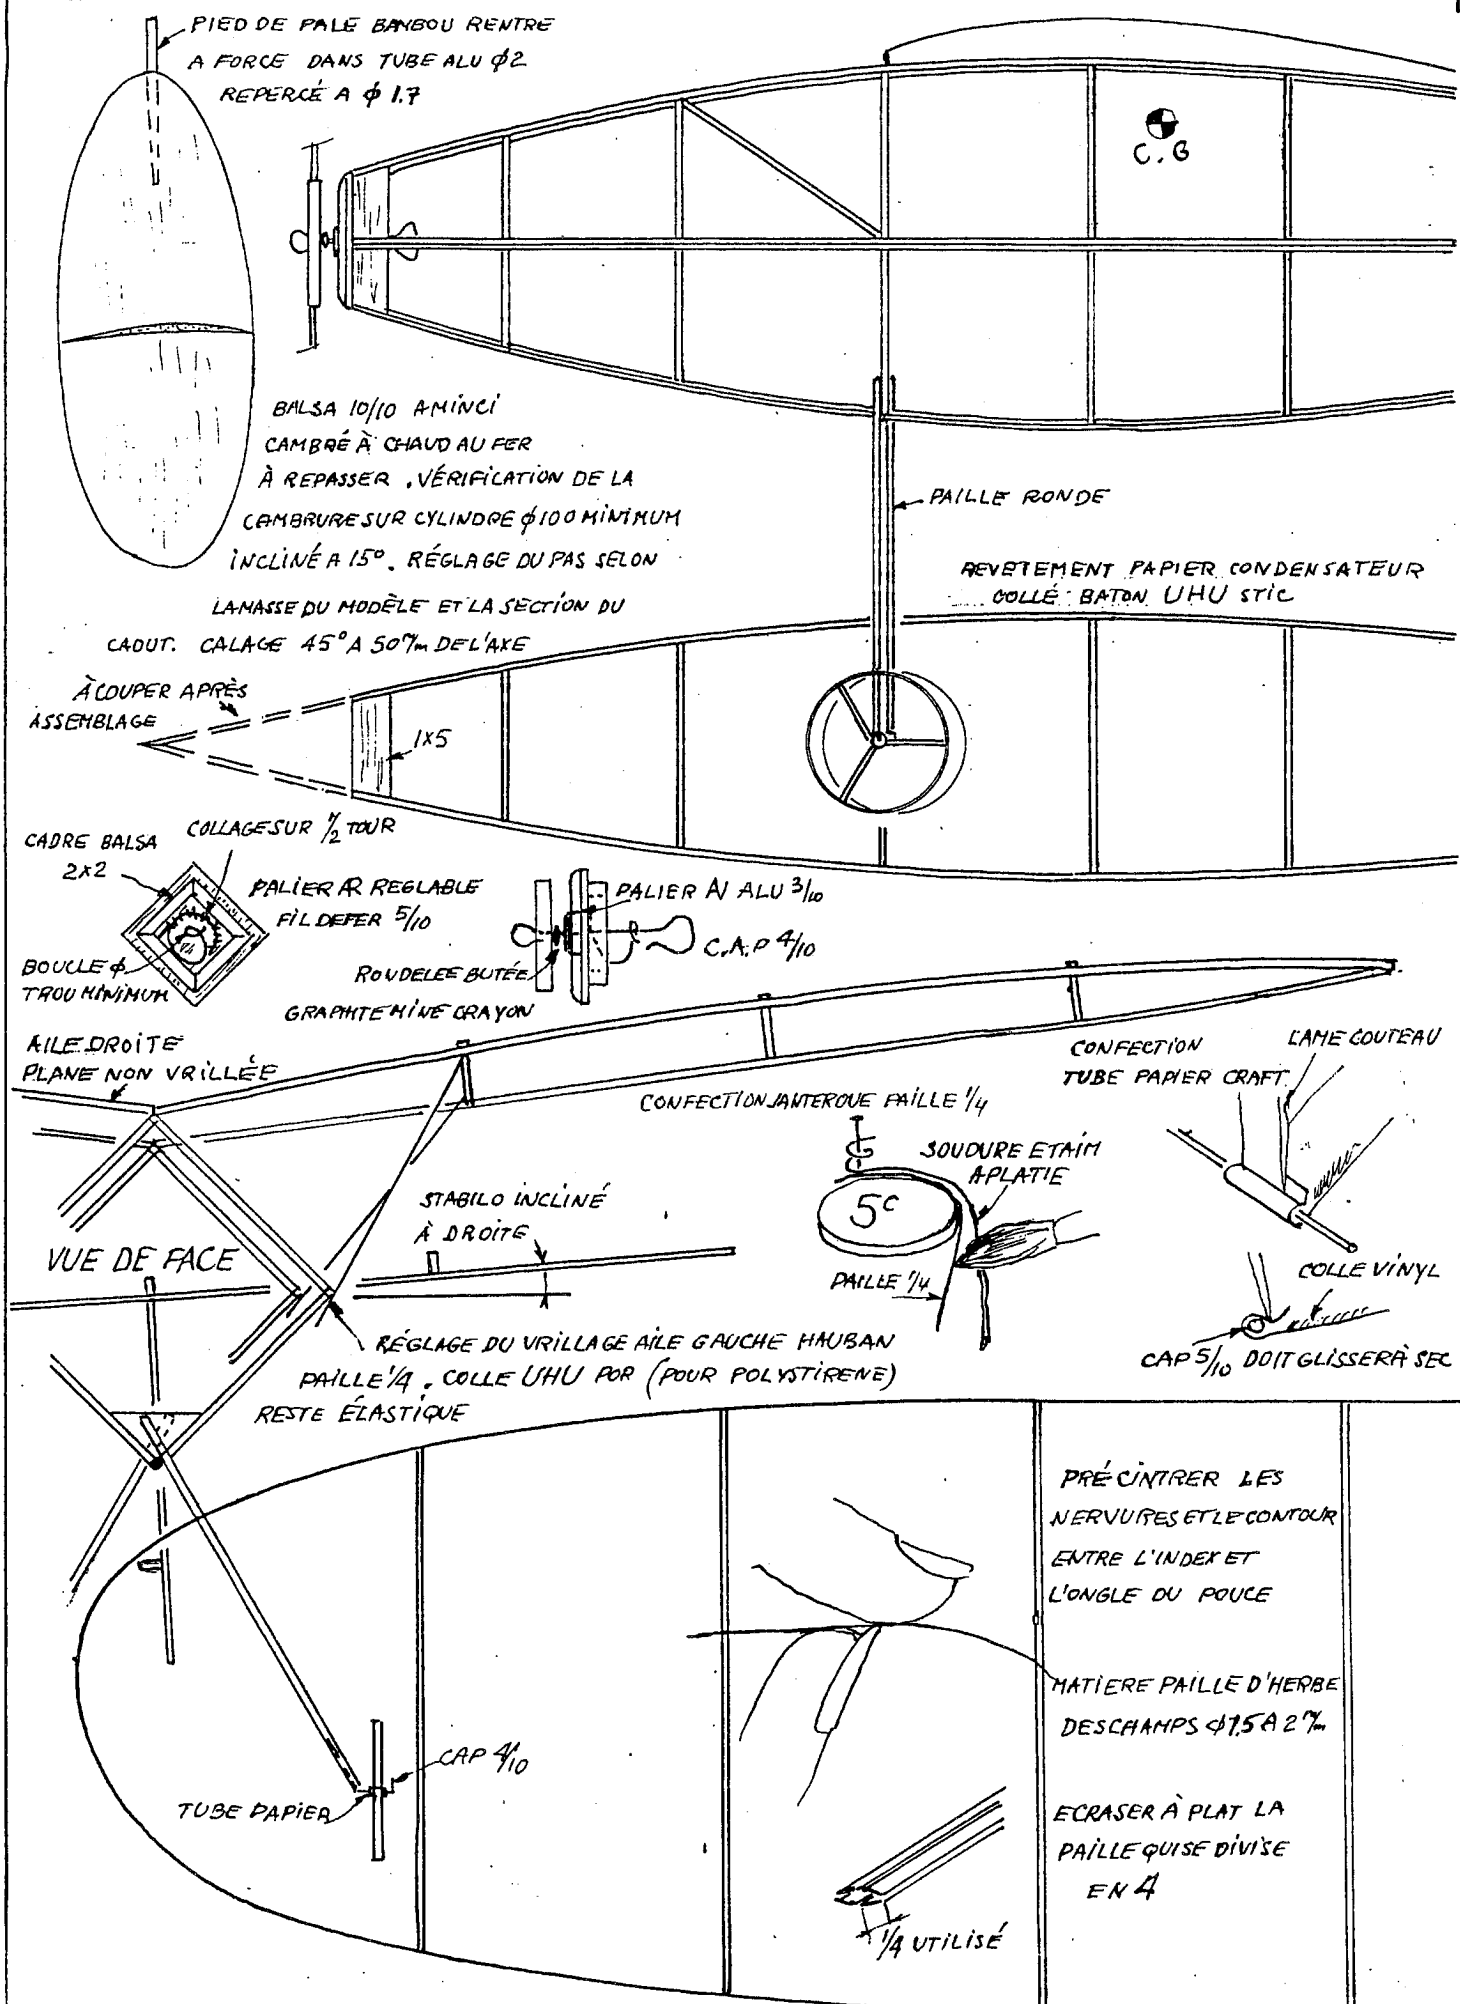 PIED DE PALE BAMBOU RENTRE
A FORCE DANS TUBE ALU φ2
REPERCÉ A φ 1.7
C.G
BALSA 10/10 AMINCI
CAMBRÉ À CHAUD AU FER
À REPASSER . VÉRIFICATION DE LA
CAMBRURE SUR CYLINDRE φ100 MINIMUM
INCLINÉ A 15°. RÉGLAGE DU PAS SELON
LA MASSE DU MODÈLE ET LA SECTION DU
CAOUT. CALAGE 45° A 50 m/m DE L'AXE
PAILLE RONDE
REVETEMENT PAPIER CONDENSATEUR
COLLÉ BATON UHU STIC
À COUPER APRÈS
ASSEMBLAGE
1x5
CADRE BALSA
2x2
COLLAGE SUR 1/2 TOUR
PALIER AR REGLABLE
FIL DE FER 5/10
BOUCLE φ
TROU MINIMUM
PALIER AV ALU 3/10
C.A.P 4/10
RONDELLE BUTÉE
GRAPHITE MINE CRAYON
AILE DROITE
PLANE NON VRILLÉE
CONFECTION JANTE ROUE PAILLE 1/4
CONFECTION
TUBE PAPIER CRAFT
LAME COUTEAU
SOUDURE ETAIM
APLATIE
5c
PAILLE 1/4
STABILO INCLINÉ
À DROITE
COLLE VINYL
CAP 5/10 DOIT GLISSER À SEC
VUE DE FACE
RÉGLAGE DU VRILLAGE AILE GAUCHE HAUBAN
PAILLE 1/4 . COLLE UHU POR (POUR POLYSTIRENE)
RESTE ÉLASTIQUE
PRÉ CINTRER LES
NERVURES ET LE CONTOUR
ENTRE L'INDEX ET
L'ONGLE DU POUCE
MATIERE PAILLE D'HERBE
DES CHAMPS φ1.5 A 2 m/m
CAP 4/10
TUBE PAPIER
ECRASER À PLAT LA
PAILLE QUI SE DIVISE
EN 4
1/4 UTILISÉ